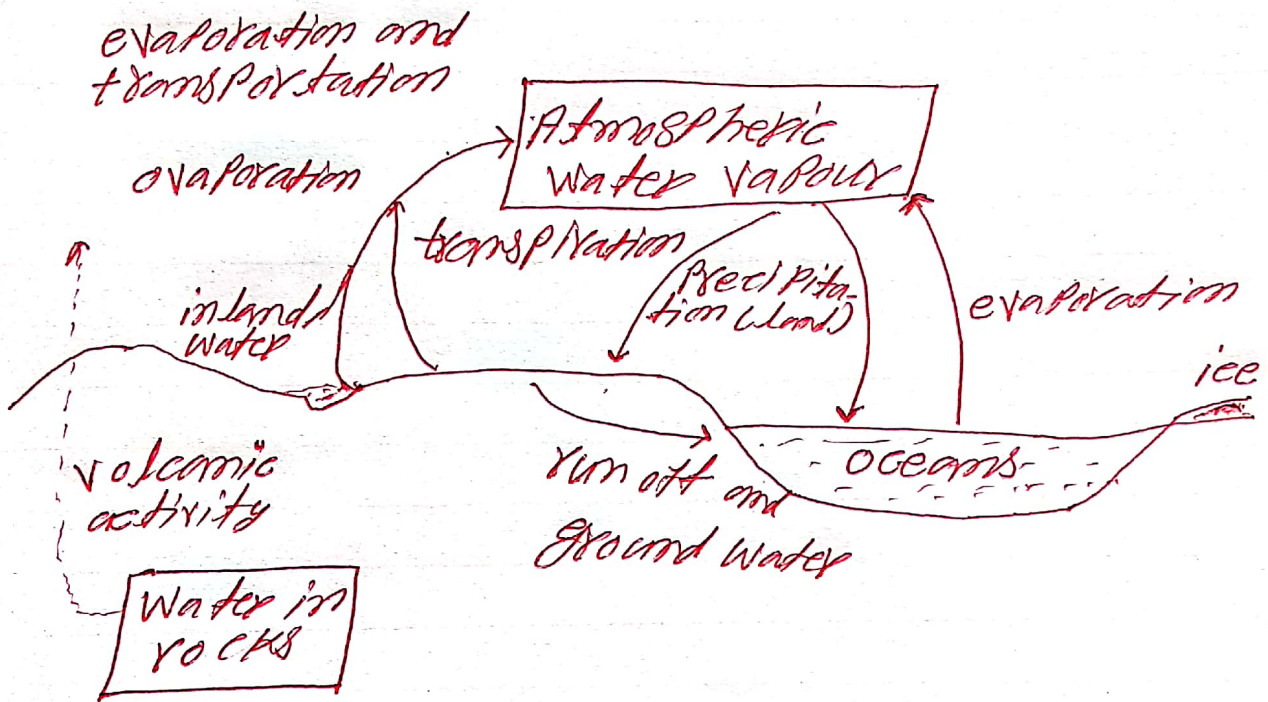 evaporation and
transportation
Atmospheric
water vapour
ovaporation
transpiration
precipita-
tion (land)
evaporation
inland
water
ice
volcanic
activity
oceans
run off and
ground water
Water in
rocks